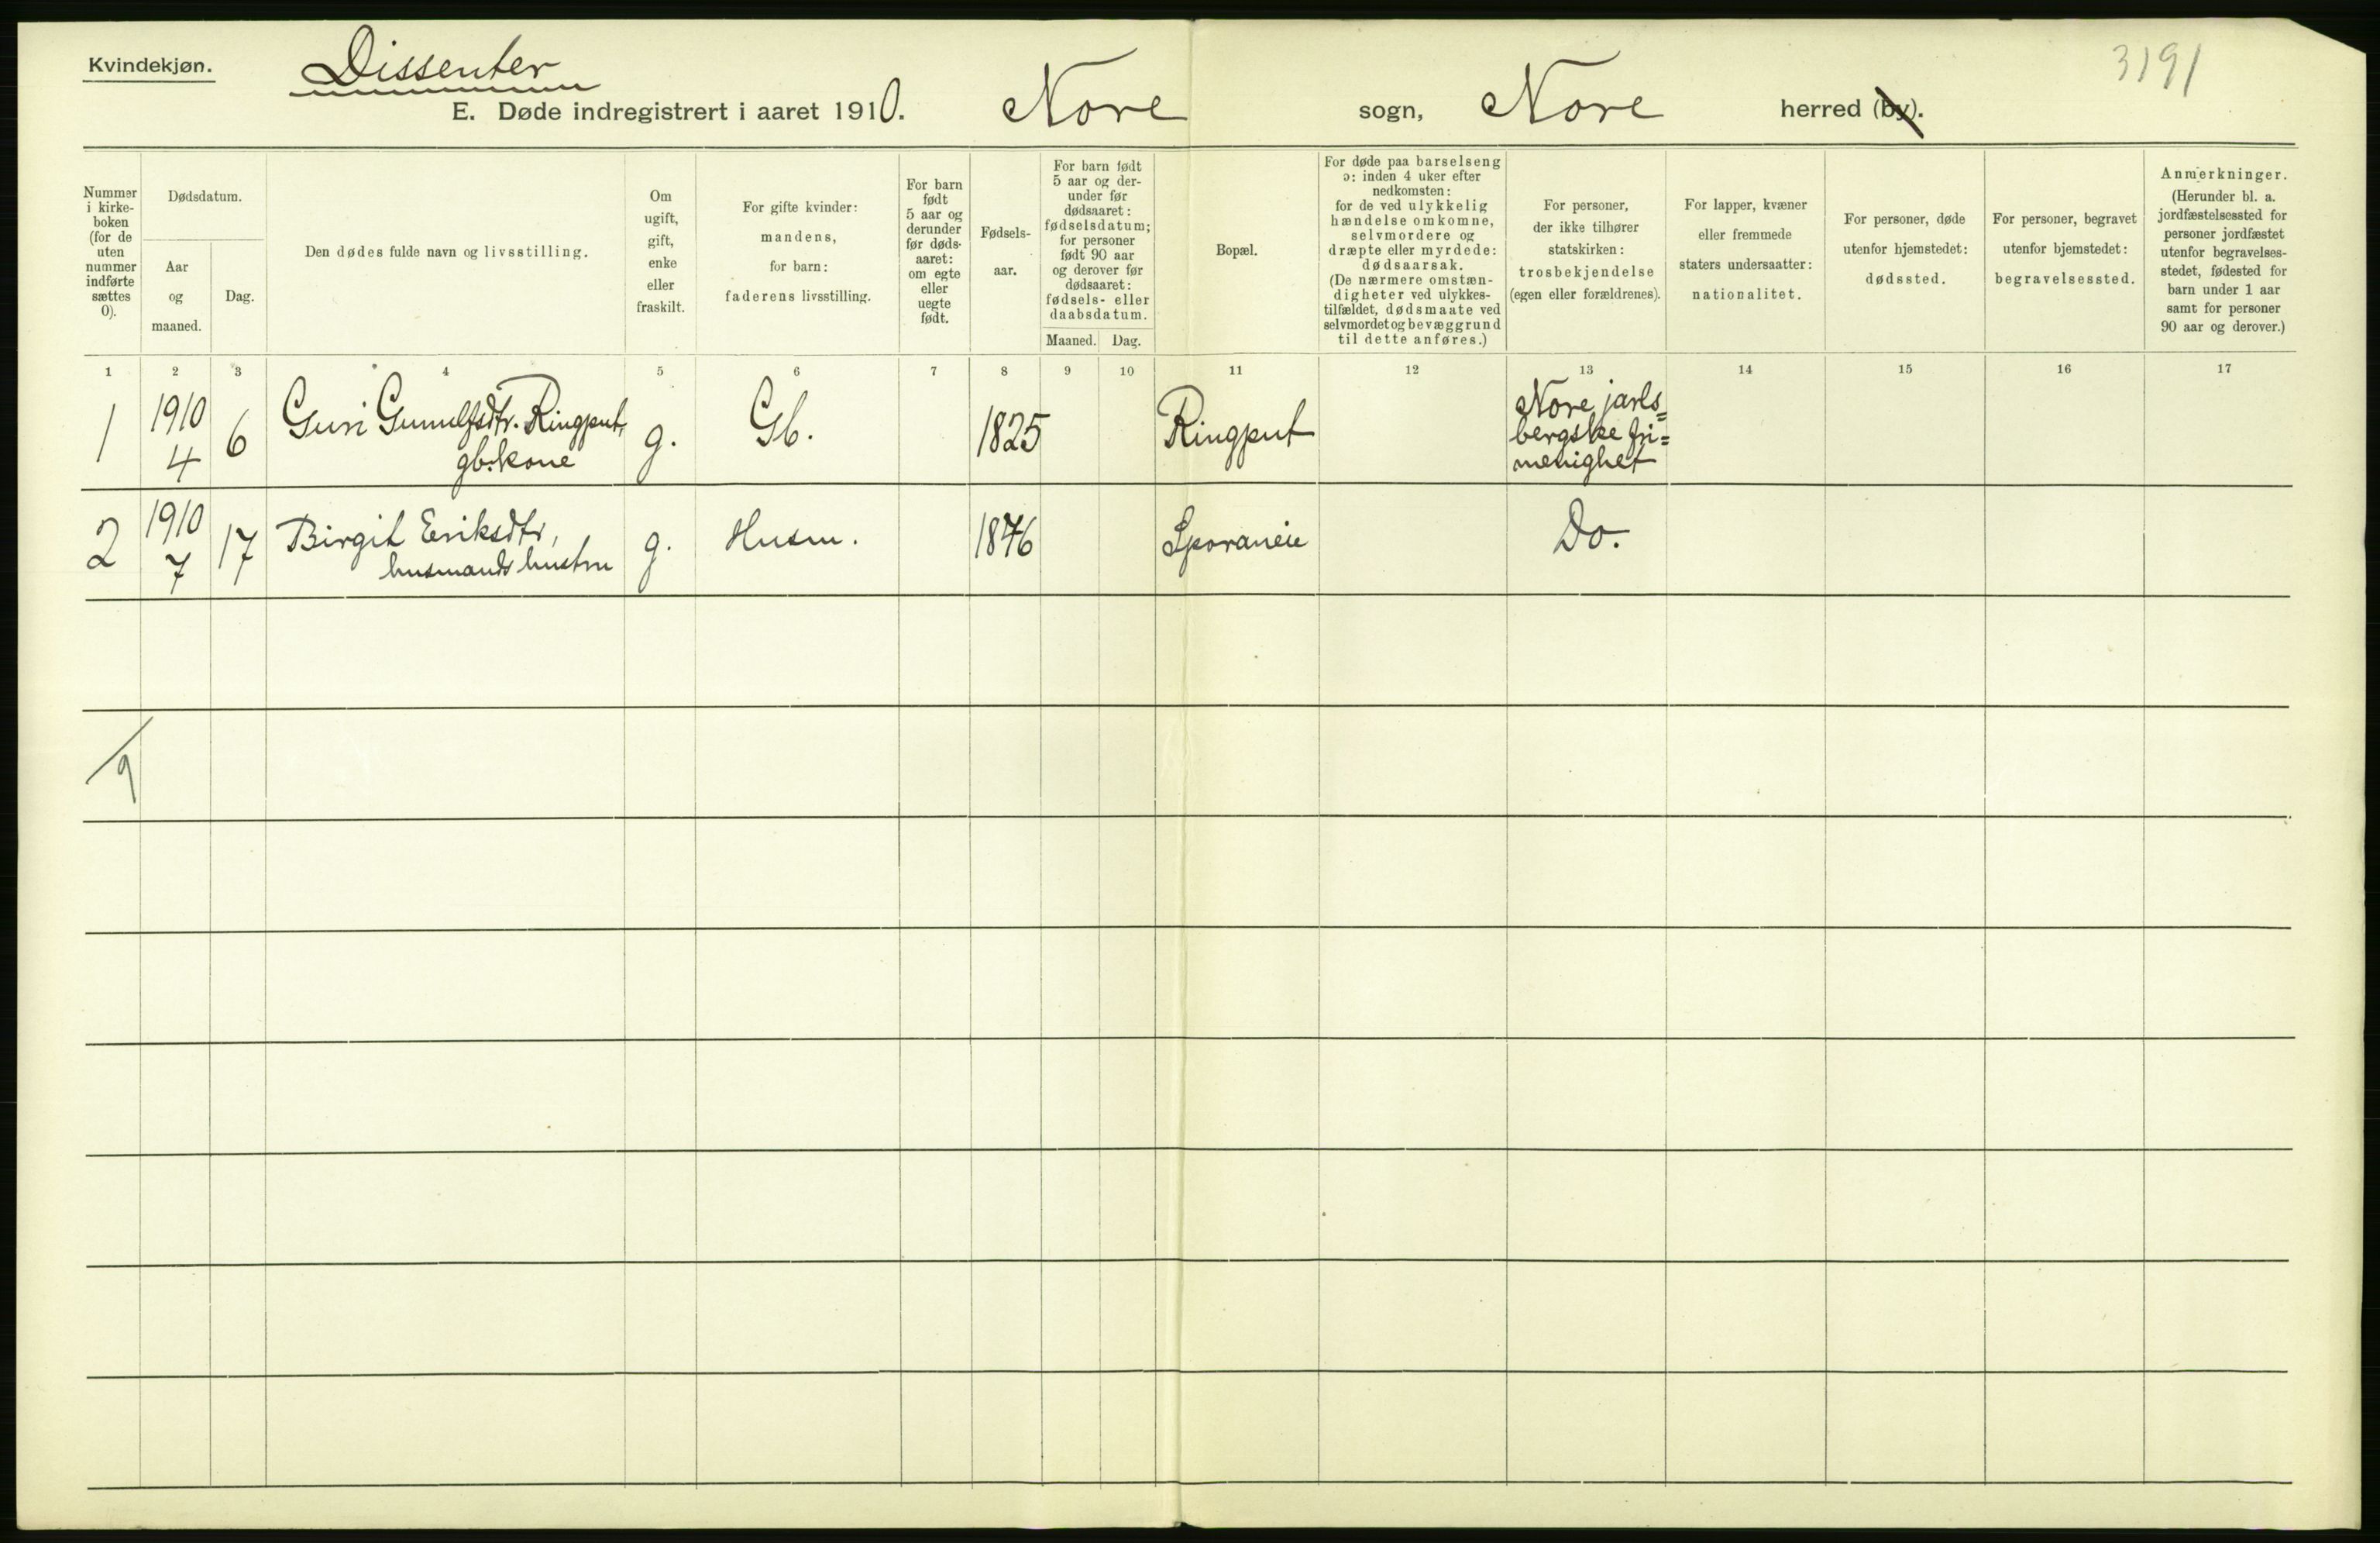 Kvindekjøn.
Dissenter
3191
E. Døde indregistrert i aaret 1910. Nore sogn, Nore herred (by).
Nummer i kirke- boken (for de uten nummer indførte sættes 0).
Dødsdatum.
Aar og maaned.
Dag.
Den dødes fulde navn og livsstilling.
Om ugift, gift, enke eller fraskilt.
For gifte kvinder: mandens, for barn: faderens livsstilling.
For barn født 5 aar og derunder før døds- aaret: om egte eller uegte født.
Fødsels- aar.
For barn født 5 aar og der- under før dødsaaret: fødselsdatum; for personer født 90 aar og derover før dødsaaret: fødsels- eller daabsdatum.
Maaned. Dag.
Bopæl.
For døde paa barselseng ɔ: inden 4 uker efter nedkomsten: for de ved ulykkelig hændelse omkomne, selvmordere og dræpte eller myrdede: dødsaarsak. (De nærmere omstæn- digheter ved ulykkes- tilfældet, dødsmaate ved selvmordet og bevæggrund til dette anføres.)
For personer, der ikke tilhører statskirken: trosbekjendelse (egen eller forældrenes).
For lapper, kvæner eller fremmede staters undersaatter: nationalitet.
For personer, døde utenfor hjemstedet: dødssted.
For personer, begravet utenfor bjemstedet: begravelsessted.
Anmerkninger. (Herunder bl. a. jordfæstelsessted for personer jordfæstet utenfor begravelses- stedet, fødested for barn under 1 aar samt for personer 90 aar og derover.)
1 2 3 4 5 6 7 8 9 10 11 12 13 14 15 16 17
1 1910 4 6 Guri Gunulfsdtr. Ringput, gb.kone g. Gb. 1825 Ringput Nore jarls= bergske fri= menighet
2 1910 7 17 Birgit Eriksdtr, husmands hustru g. Husm. 1846 Sporaneie Do.
9